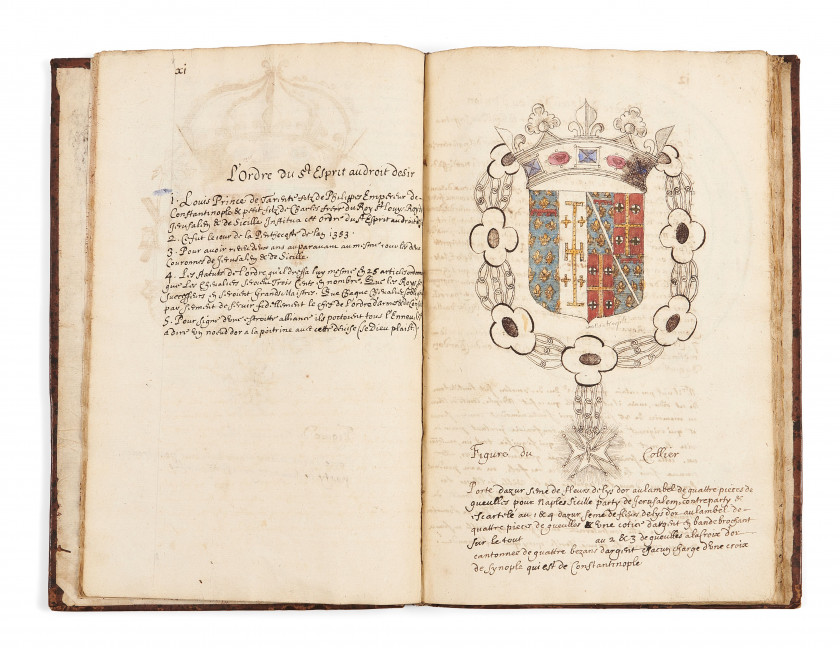 xi
L'Ordre du St Esprit au droit desir
1. Louis Prince de Tarente filz de Philippes Empereur de
Constantinople & petit filz de Charles frere du Roy St Louy Roy de
Jerusalem & de Sicille Institua cet ordre du St Esprit au droit
2. Ce fut le iour de la Pentecoste de lan 1353
3. Pour avoir receu deux ans auparavant au mesme iour les deux
Couronnes de Jerusalem & de Sicille.
4. Les statuts de l'ordre qu'il dressa luy mesme en 25 articles
que Les Chevaliers seroient Trois Cent en nombre, Que les Roys ses
successeurs en seroient Grands Maistres. Que chaque Chevalier
par serment de servir fidellement le chef de l'ordre
5. Pour signe d'une estroitte alliance ils portoient tous
a dire un noeud dor a la poitrine avec cette devise (se Dieu plaist)
12
Figure du Collier
Porte dazur semé de fleurs de lys dor au lambel de quattre pieces de
gueulles pour Naples Sicille party de Jerusalem, contreparty &
escartelé au 1 & 4 dazur semé de fleurs de lys dor au lambel de
quattre pieces de gueulles & une cotice dargent en bande brochant
sur le tout au 2 & 3 de gueulles a la croix dor
cantonnee de quattre bezans dargent chacun chargé d'une croix
de synople qui est de Constantinople